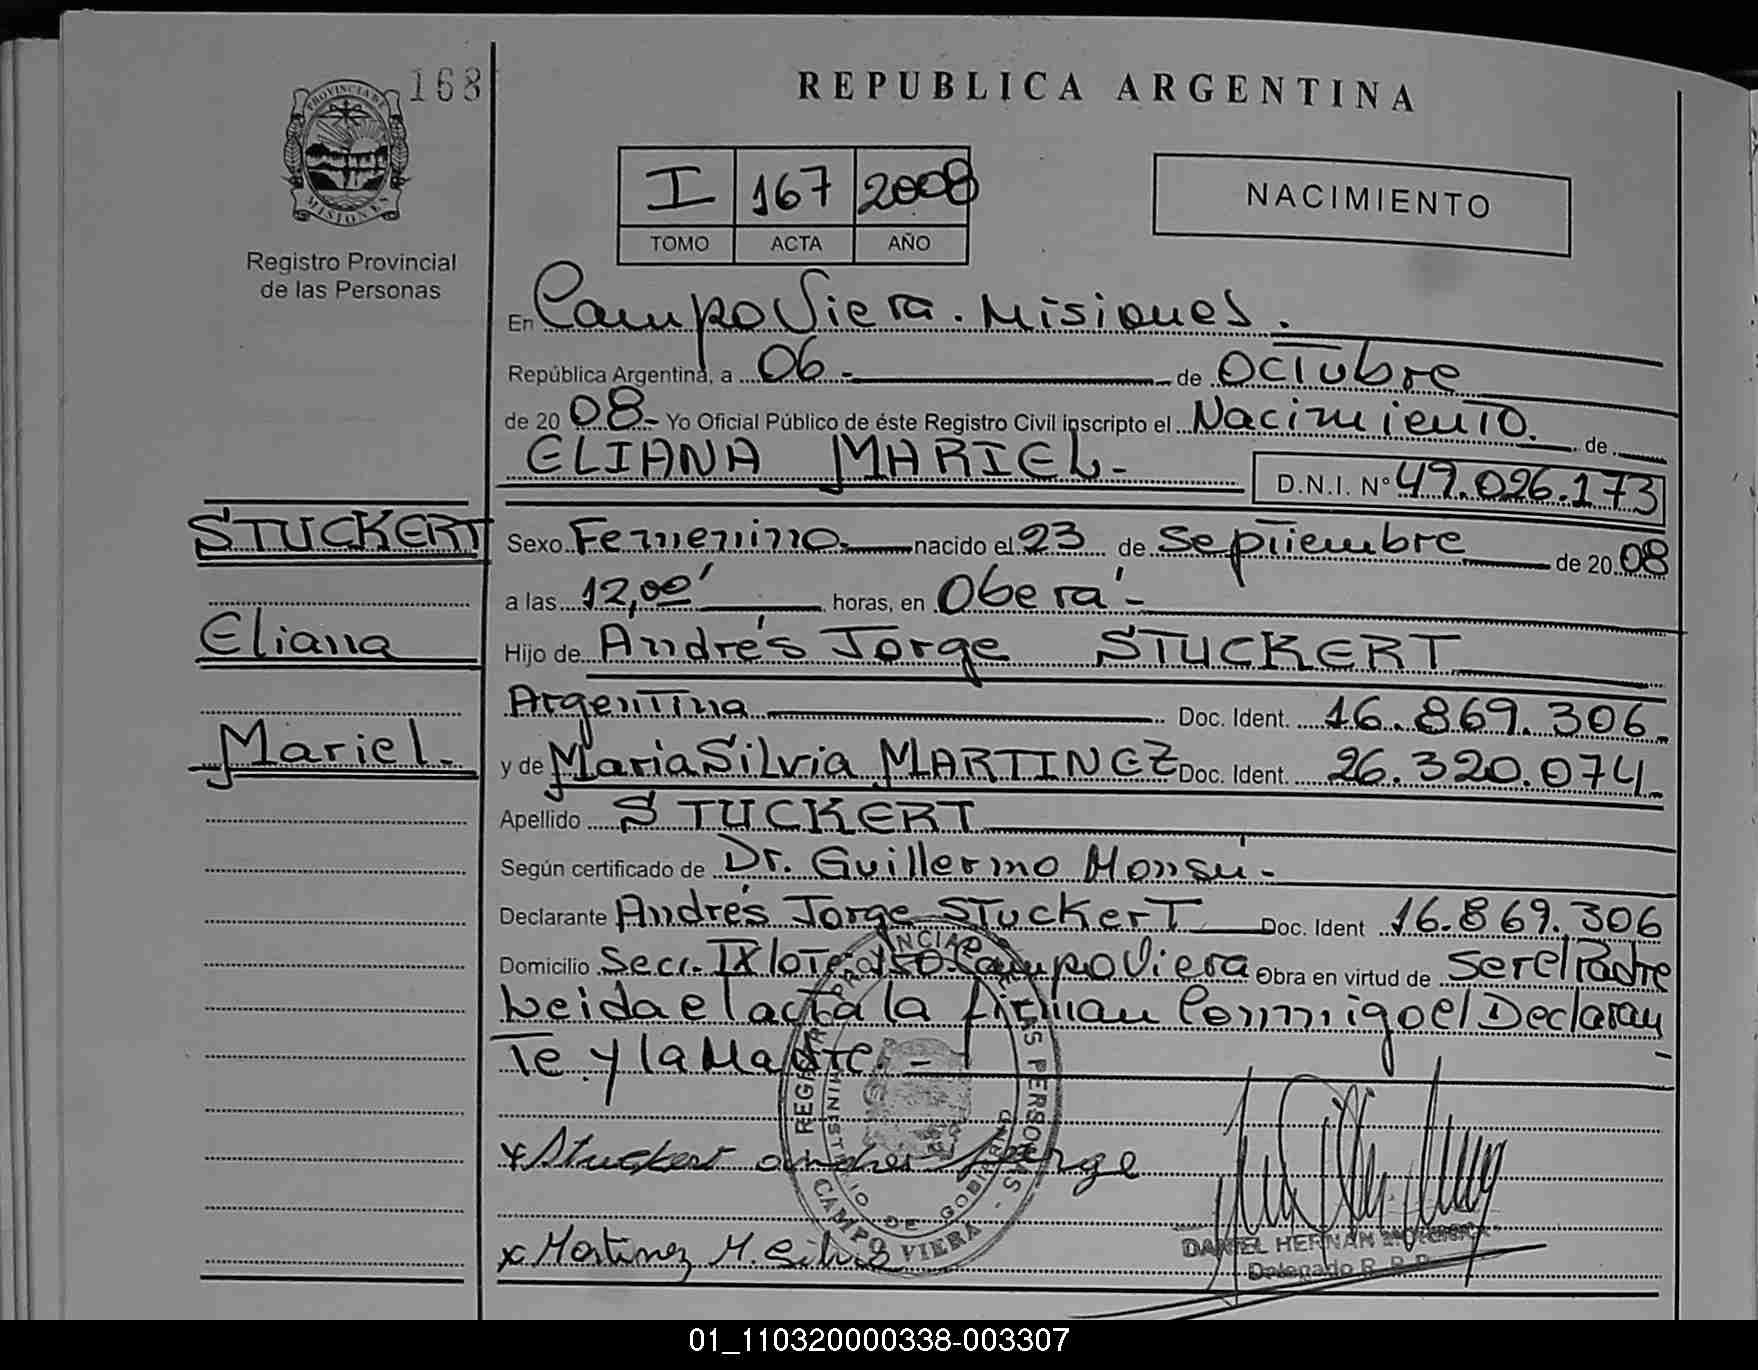 168
PROVINCIA DE
MISIONES
Registro Provincial
de las Personas
REPUBLICA ARGENTINA
I 167 2008
TOMO ACTA AÑO
NACIMIENTO
En Campo Viera. Misiones.
República Argentina, a 06 - de Octubre
de 2008.- Yo Oficial Público de éste Registro Civil inscripto el Nacimiento. de
ELIANA MARIEL.-
D.N.I. Nº 49.026.173
STUCKERT
Eliana
Mariel.-
Sexo Femenino. nacido el 23 de Septiembre de 2008
a las 12,00' horas, en Oberá -
Hijo de Andrés Jorge STUCKERT
Argentina Doc. Ident. 16.869.306.
y de Maria Silvia MARTINEZ Doc. Ident. 26.320.074.
Apellido STUCKERT
Según certificado de Dr. Guillermo Monsú.-
Declarante Andrés Jorge Stuckert Doc. Ident 16.869.306
Domicilio Secc. IX lote Campo Viera Obra en virtud de ser el Padre
Leida el acta la firman Conmigo el Declaran
te y la Madre. -
x Stuckert andres Jorge
x Martinez M. Silvia
REGISTRO PROVINCIAL DE LAS PERSONAS - CAMPO VIERA
MINISTERIO DE GOBIERNO
DANIEL HERNAN
Delegado R. P. P.
01_110320000338-003307